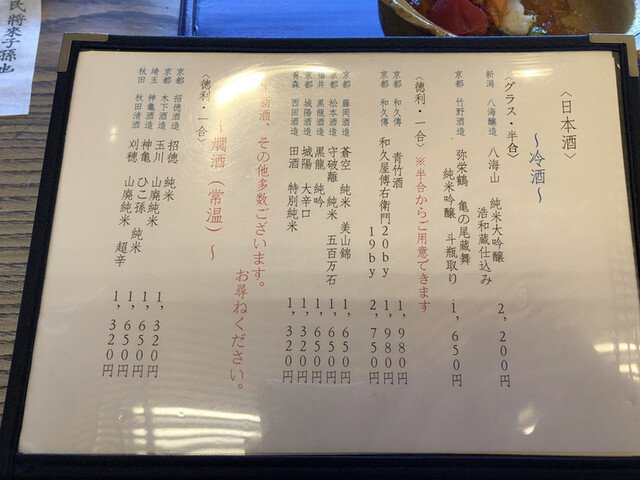 民將來子孫也
〈日本酒〉
～冷酒～
〈グラス・半合〉
新潟 八海醸造 八海山 純米大吟醸
浩和蔵仕込み 2,200円
京都 竹野酒造 弥栄鶴 亀の尾蔵舞
純米吟醸 斗瓶取り 1,650円
〈徳利・一合〉 ※半合からご用意できます
京都 和久傳 青竹酒 1,980円
京都 和久傳 和久屋傳右衛門20by 1,980円
19by 2,750円
京都 藤岡酒造 蒼空 純米 美山錦 1,650円
京都 松本酒造 守破離 純米 五百万石 1,650円
福井 黒龍酒造 黒龍 純吟 1,650円
京都 城陽酒造 城陽 大辛口 1,320円
青森 西田酒造 田酒 特別純米 1,320円
※新酒、その他多数ございます。
お尋ねください。
～燗酒(常温)～
〈徳利・一合〉
京都 招徳酒造 招徳 純米 1,320円
京都 木下酒造 玉川 山廃純米 1,650円
埼玉 神亀酒造 神亀 ひこ孫 純米 1,650円
秋田 秋田清酒 刈穂 山廃純米 超辛 1,320円